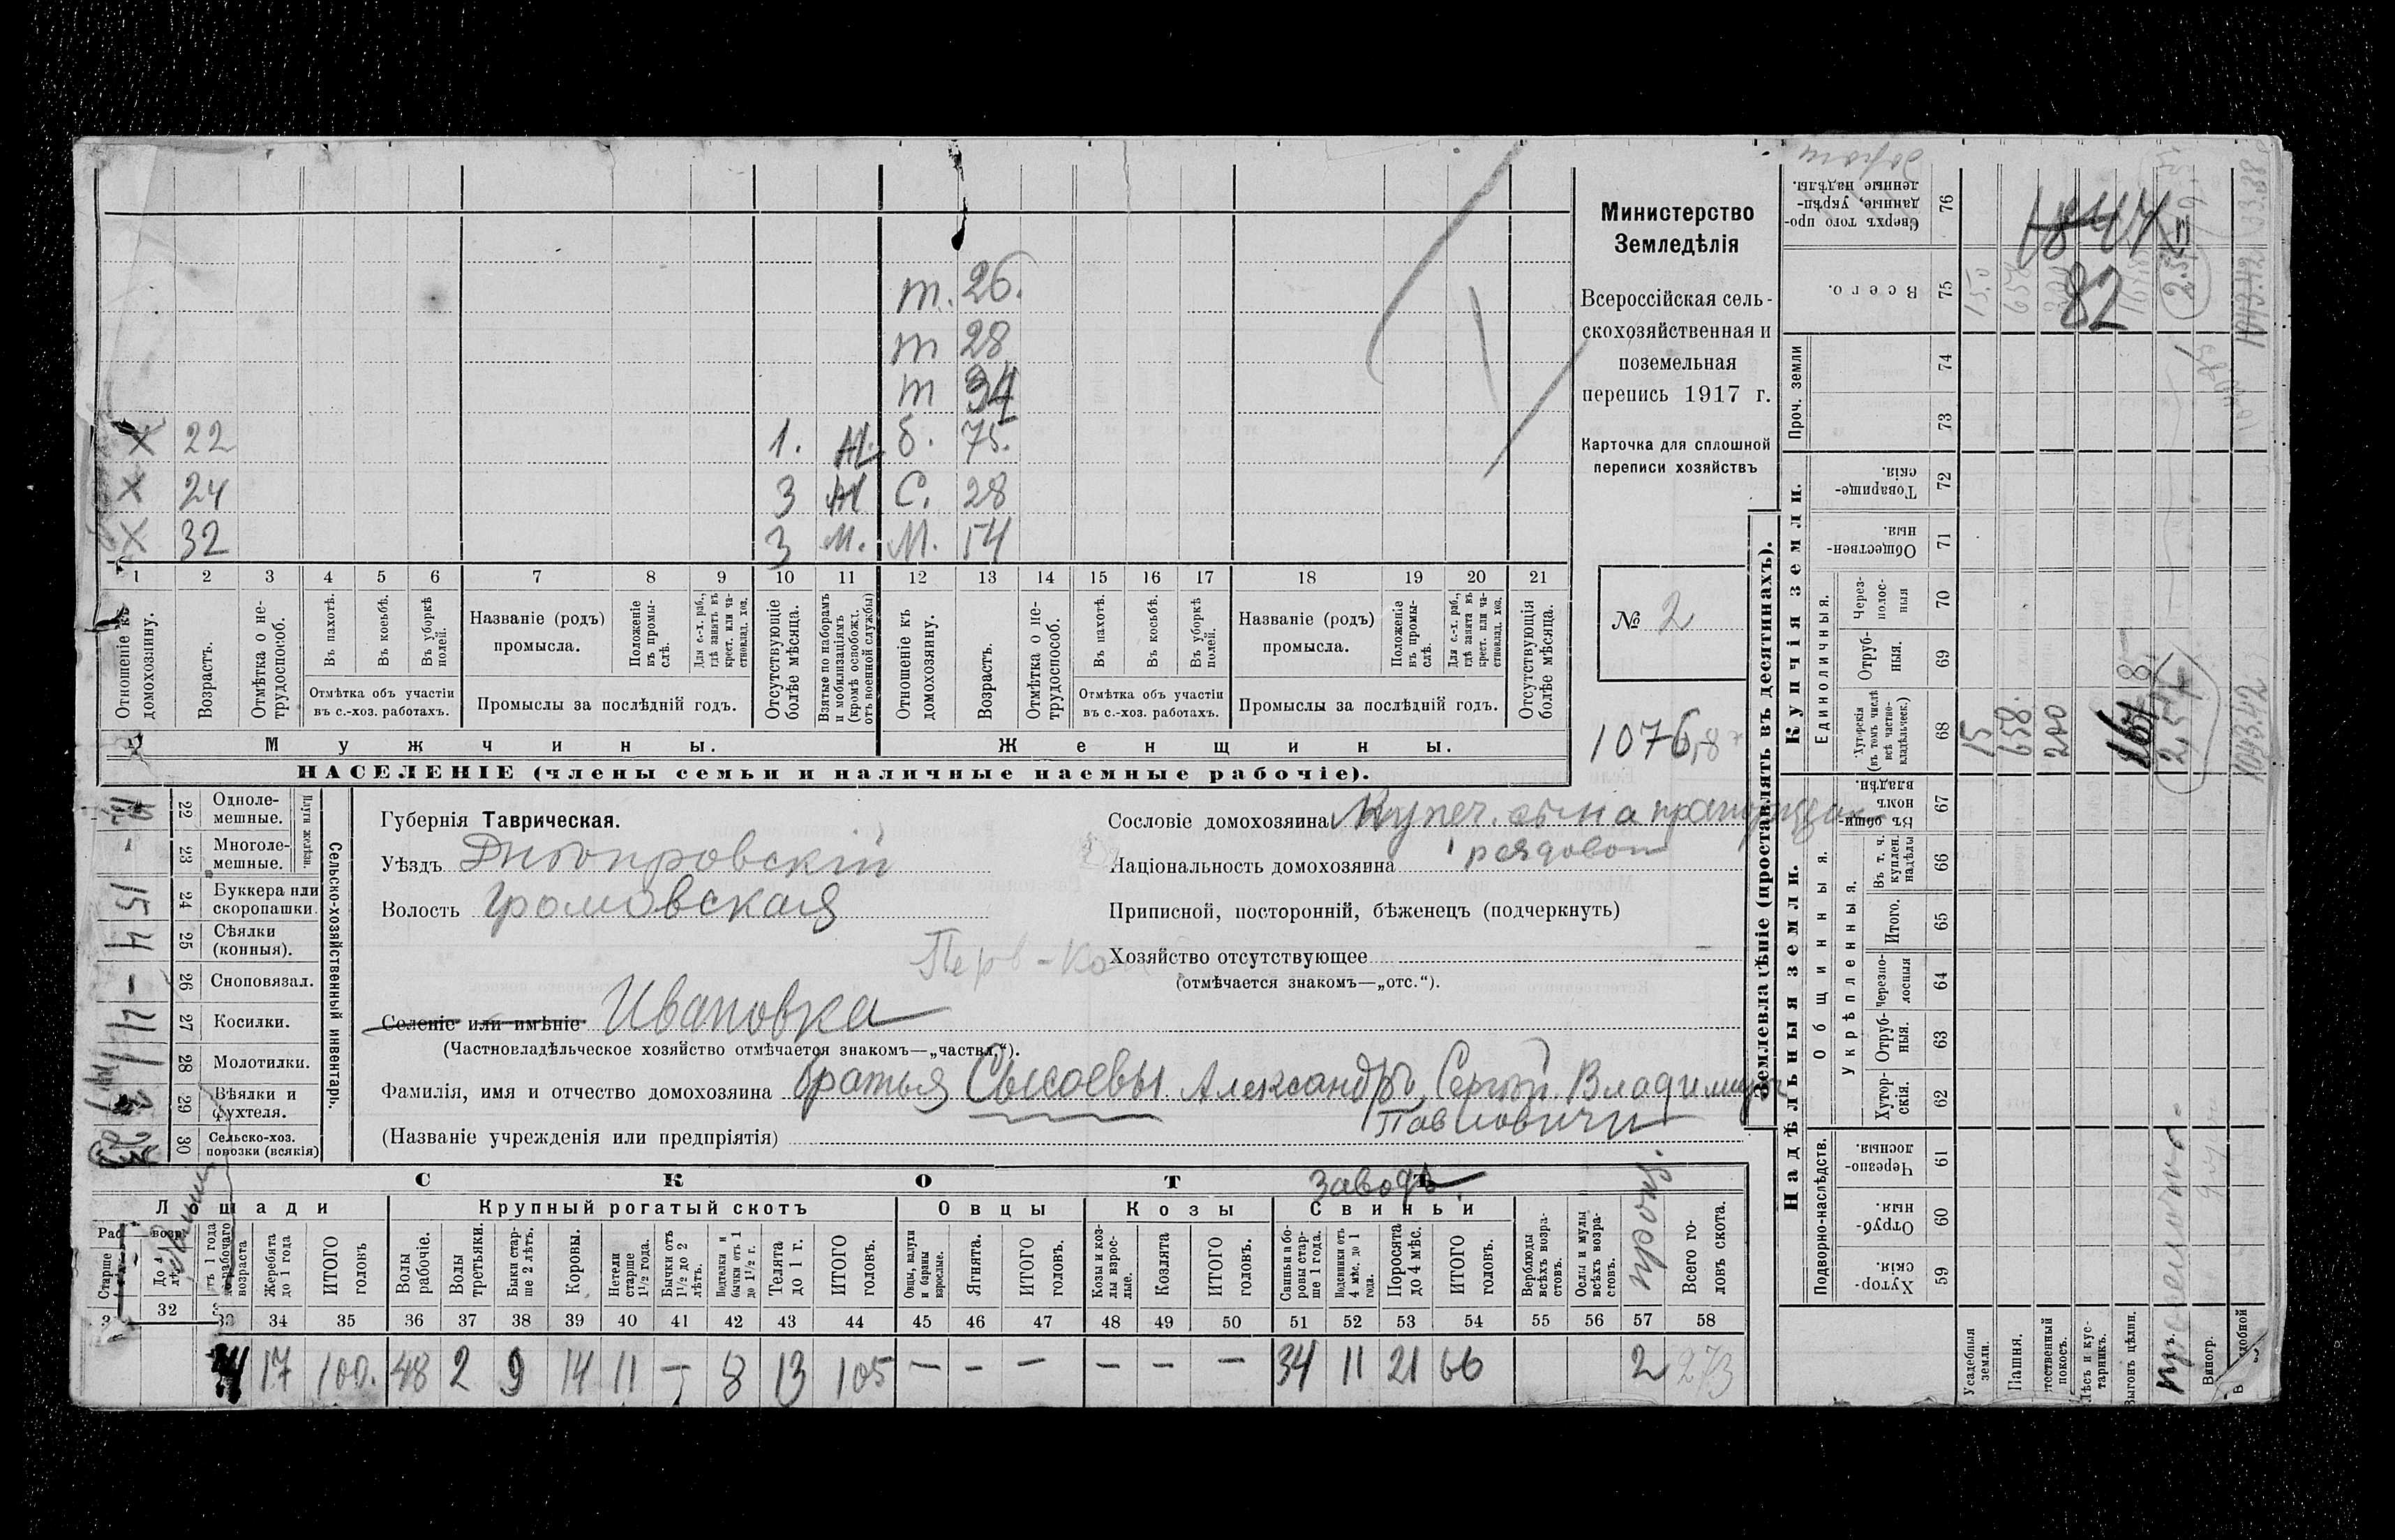 Министерство
Земледѣлія
Всероссійская сель-
скохозяйственная и
поземельная
перепись 1917 г.
Карточка для сплошной
переписи хозяйствъ
№ 2
1076,8
т. 26.
т 28
т 34
X 22 1. М. б. 75.
X 24 3 М С. 28
X 32 3 М. М. 54
1 2 3 4 5 6 7 8 9 10 11 12 13 14 15 16 17 18 19 20 21
Отношеніе къ домохозяину.
Возрастъ.
Отмѣтка о не-трудоспособ.
Въ пахотѣ.
Въ косьбѣ.
Въ уборкѣ полей.
Отмѣтка объ участіи въ с.-хоз. работахъ.
Названіе (родъ) промысла.
Положеніе въ промы-слѣ.
Для с.-х. раб., гдѣ занятъ въ крест. или ча-стновлад. хоз.
Промыслы за послѣдній годъ.
Отсутствующіе болѣе мѣсяца.
Взятые по наборамъ и мобилизаціямъ (кромѣ освобожд. отъ военной службы)
Отношеніе къ домохозяину.
Возрастъ.
Отмѣтка о не-трудоспособ.
Въ пахотѣ.
Въ косьбѣ.
Въ уборкѣ полей.
Отмѣтка объ участіи въ с.-хоз. работахъ.
Названіе (родъ) промысла.
Положеніе въ промы-слѣ.
Для с.-х. раб., гдѣ занята въ крест. или ча-стновлад. хоз.
Промыслы за послѣдній годъ.
Отсутствующія болѣе мѣсяца.
Мужчины. Женщины.
НАСЕЛЕНІЕ (члены семьи и наличные наемные рабочіе).
Сельско-хозяйственный инвентарь.
Плуги желѣзн.
22 Одноле-мешные.
23 Многоле-мешные. -
24 Буккера или скоропашки. 15
25 Сѣялки (конныя). 4
26 Сноповязал. -
27 Косилки. 4
28 Молотилки. 1
29 Вѣялки и фухтеля.
30 Сельско-хоз. повозки (всякія)
Губернія Таврическая.
Уѣздъ Днѣпровскій
Волость Громовская
Селеніе или имѣніе Ивановка
(Частновладѣльческое хозяйство отмѣчается знакомъ—„частвл.“).
Фамилія, имя и отчество домохозяина братья Сысоевы Александръ, Сергѣй Владимиръ
Павловичи
(Названіе учрежденія или предпріятія)
Сословіе домохозяина Купеч. сына прапорщик
Національность домохозяина рядовой
Приписной, посторонній, бѣженецъ (подчеркнуть)
Хозяйство отсутствующее –
(отмѣчается знакомъ—„отс.“).
СКОТЪ
заводъ.
Лошади Крупный рогатый скотъ Овцы Козы Свиньи
Жеребята до 1 года
ИТОГО головъ
Волы рабочіе.
Волы третьяки.
Быки стар-ше 2 лѣтъ.
Коровы.
Нетели старше 1½ года.
Бычки отъ 1½ до 2 лѣтъ.
Подтелки и бычки отъ 1 до 1½ г.
Телята до 1 г.
ИТОГО головъ.
Овцы, валухи и бараны взрослые.
Ягнята.
ИТОГО головъ.
Козы и коз-лы взрос-лые.
Козлята
ИТОГО головъ.
Свиньи и бо-ровы стар-ше 1 года.
Подсвинки отъ 4 мѣс. до 1 года.
Поросята до 4 мѣс.
ИТОГО головъ.
Верблюды всѣхъ возра-стовъ.
Ослы и мулы всѣхъ возра-стовъ.
Всего го-ловъ скота.
32 33 34 35 36 37 38 39 40 41 42 43 44 45 46 47 48 49 50 51 52 53 54 55 56 57 58
17 100. 48 2 9 14 11 – 8 13 105 – – – – – – 34 11 21 66 2 273
Землевладѣніе (проставлять въ десятинахъ).
Надѣльныя земли. Купчія земли.
Подворно-наслѣдств.
Общинныя.
Укрѣпленныя.
Единоличныя.
Проч. земли
59 Хутор-скія.
60 Отруб-ныя.
61 Черезпо-лосныя.
62 Хутор-скія.
63 Отруб-ныя.
64 Черезпо-лосныя
65 Итого.
66 Въ т. ч. куплен. надѣлы
67 Въ общин-номъ владѣн.
68 Хуторскія (въ томъ числѣ всѣ частно-владѣльческ.)
69 Отруб-ныя.
70 Через-полос-ныя
71 Обществен-ныя.
72 Товарище-скія.
73
74
75 Всего.
76 Сверхъ того про-данные, укрѣп-ленные надѣлы.
Усадебныя земли. 15
Пашня. 658.
Естественный покосъ. 200
Лѣсъ и кус-тарникъ.
Выгонъ цѣлин.
Виногр.
82
1043.42